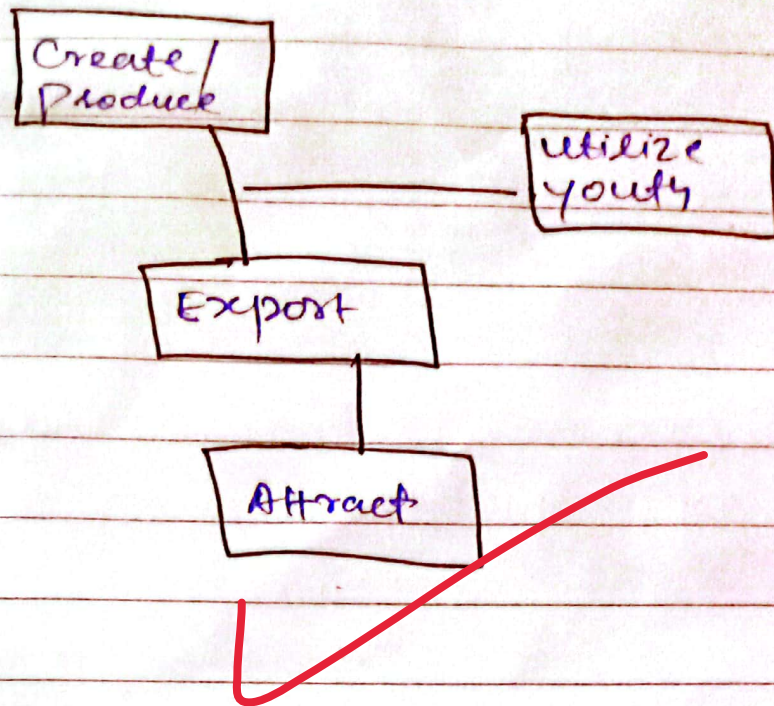 Create/
Produce
utilize
youth
Export
Attract